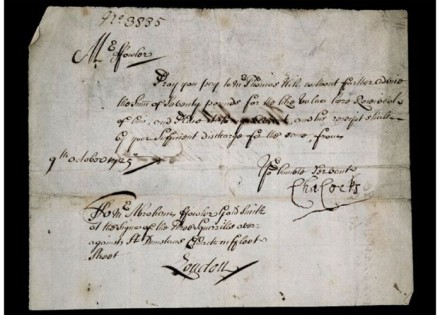 No 3835
Mr ffowler
Pray you pay to Mr Thomas Hill without further advice
the Sum of Twenty pounds for the like value here Received
of him, and and his receipt shall
be your Sufficient discharge for the same from
9th October 1725
Yor humble Servant
Cha Cocks
To Mr Abraham ffowler Goldsmith
at the Signe of the Three Squirrills over
against St Dunstans Church in ffleet
Street
London